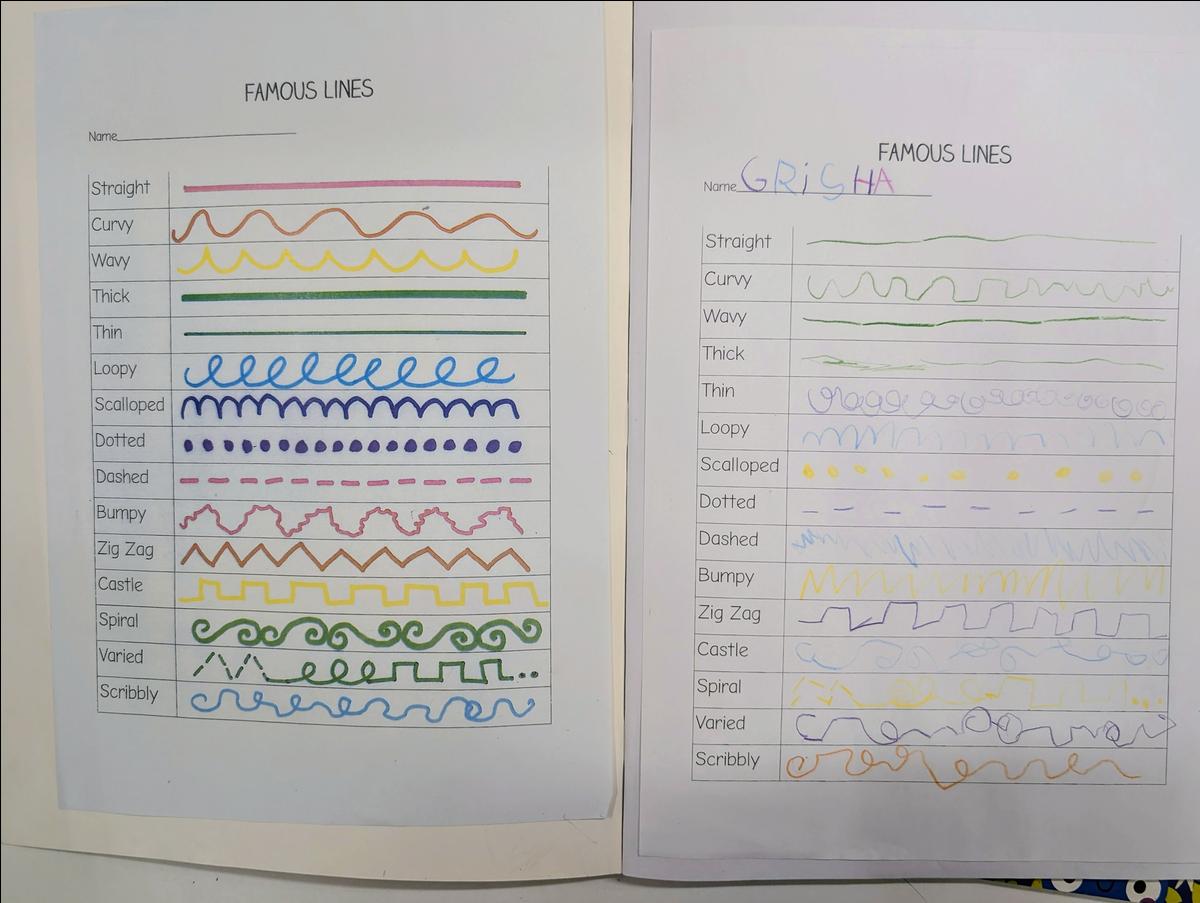 FAMOUS LINES
Name
Straight
Curvy
Wavy
Thick
Thin
Loopy
Scalloped
Dotted
Dashed
Bumpy
Zig Zag
Castle
Spiral
Varied
Scribbly
FAMOUS LINES
Name GRiSHA
Straight
Curvy
Wavy
Thick
Thin
Loopy
Scalloped
Dotted
Dashed
Bumpy
Zig Zag
Castle
Spiral
Varied
Scribbly